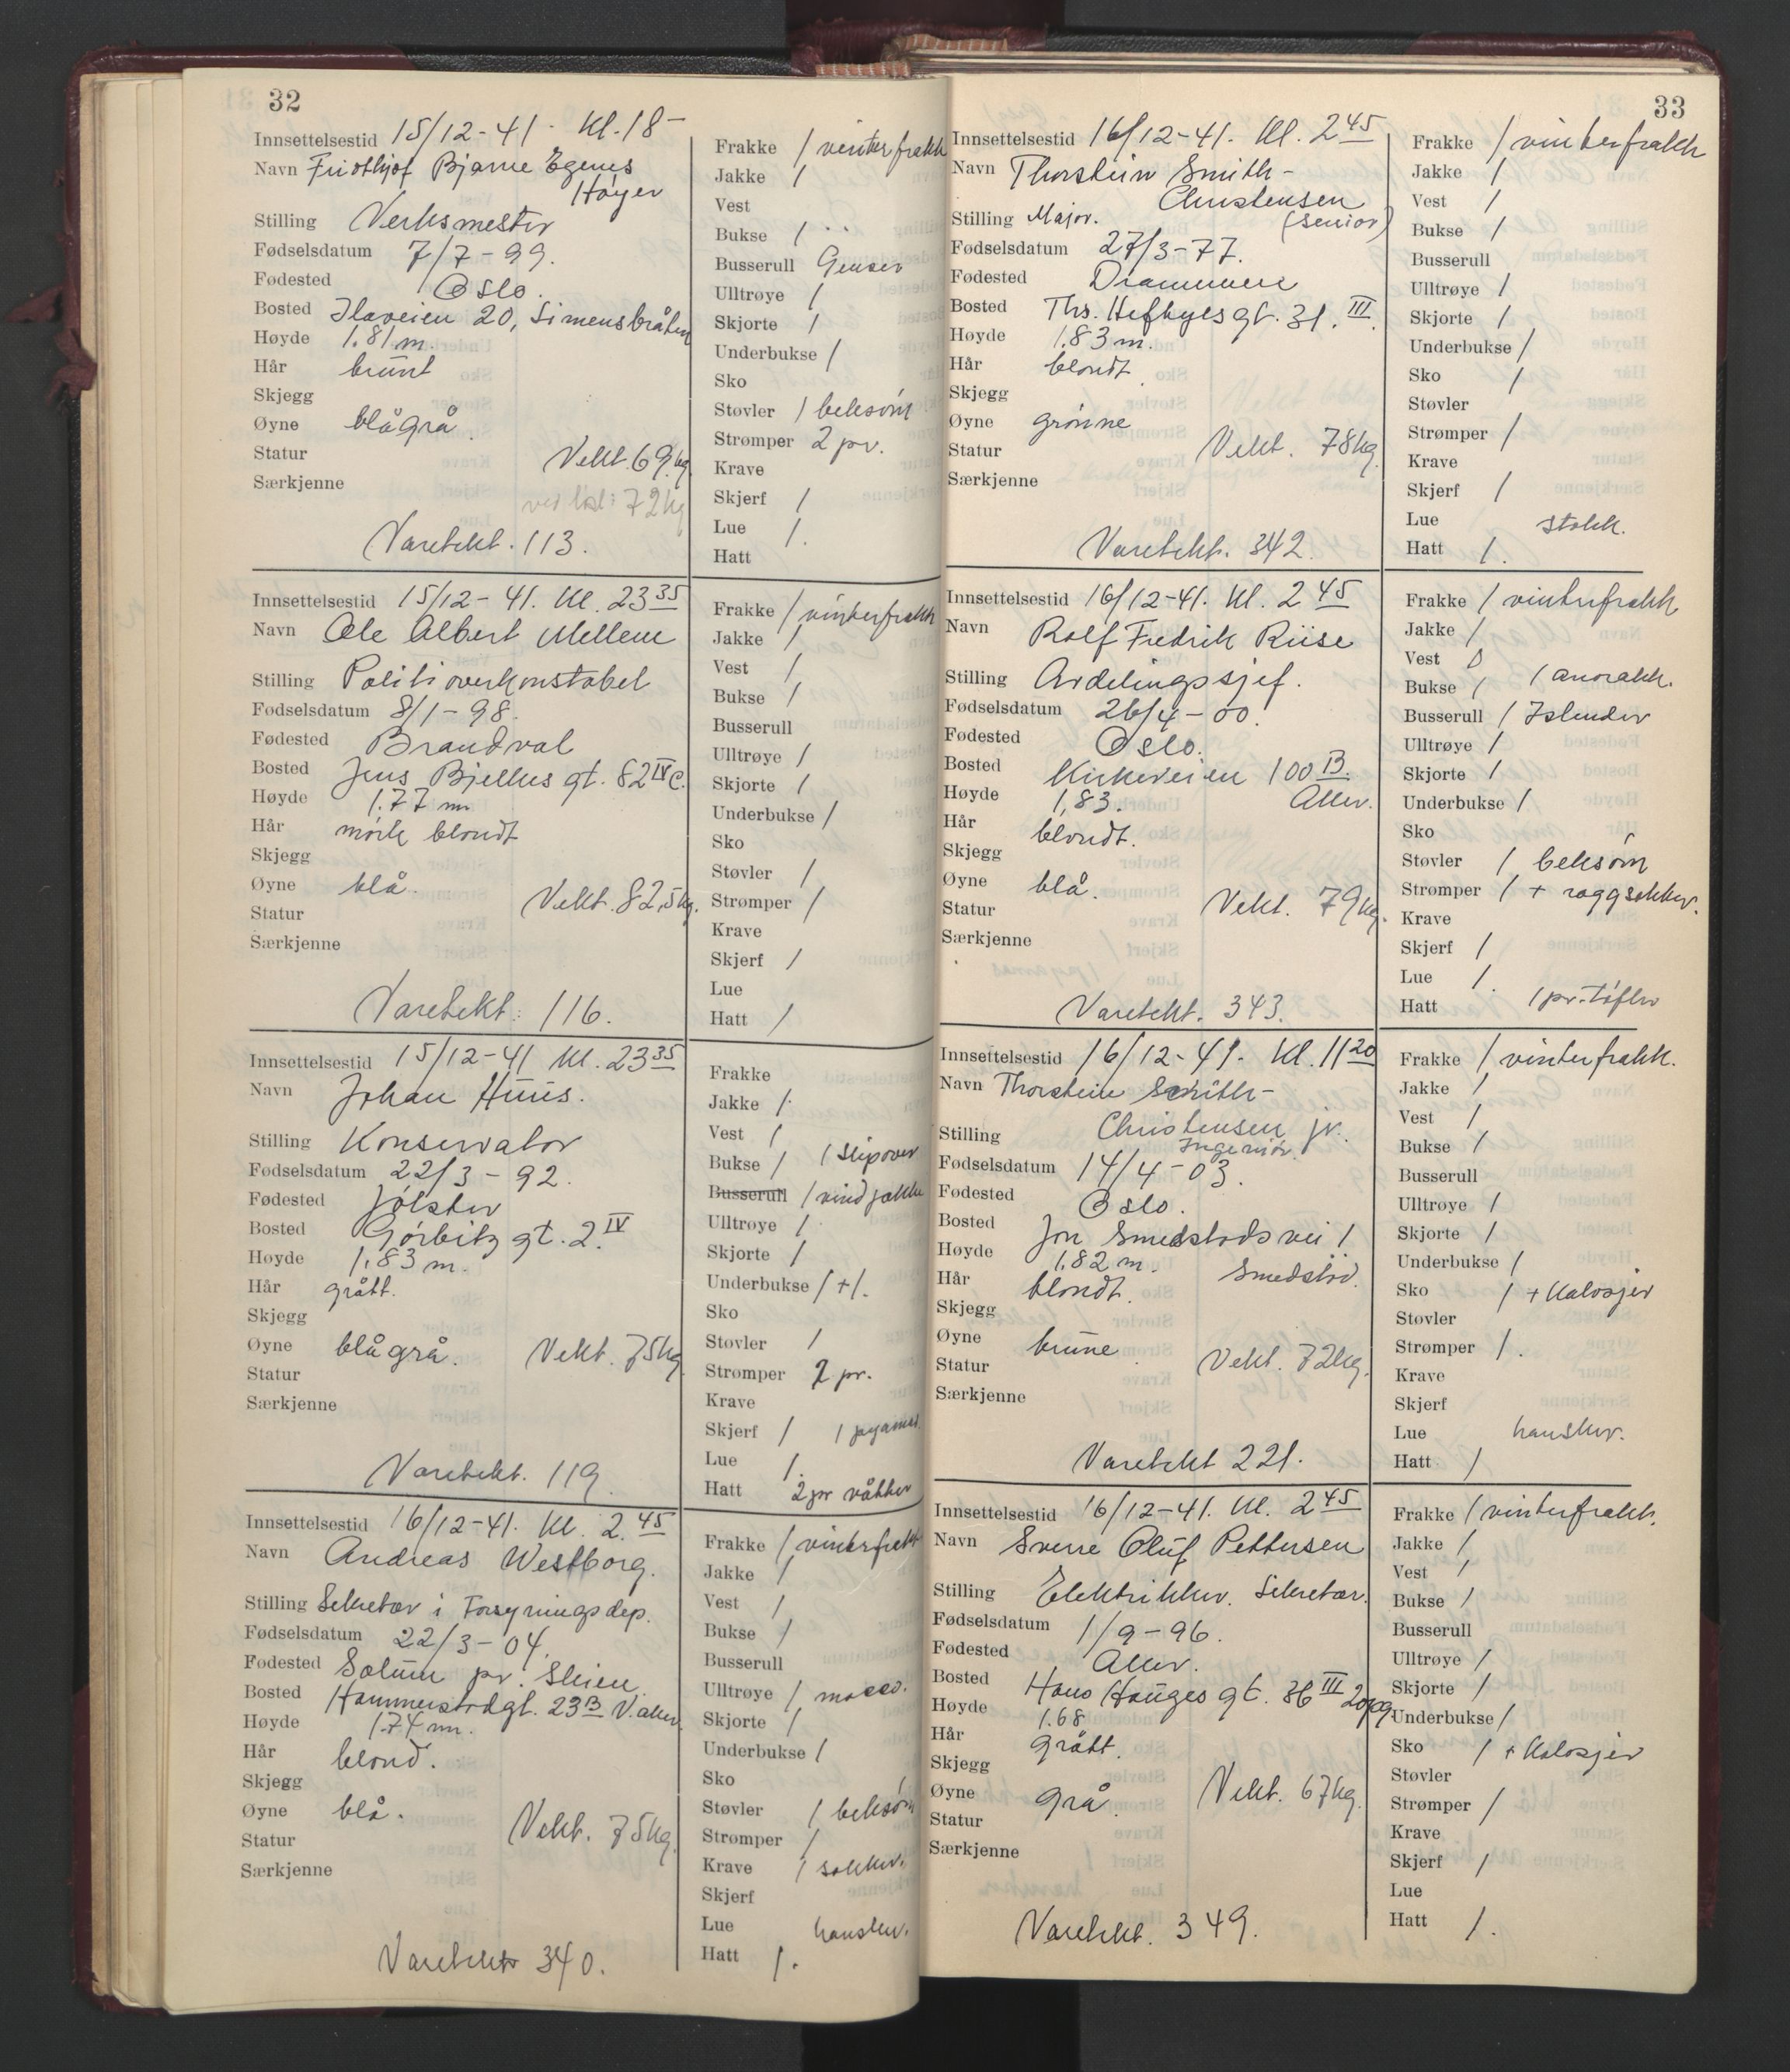 32
Innsettelsestid 15/12-41. Kl. 18-
Navn Fridthjof Bjarne Egenes
Høyer
Stilling Verksmester
Fødselsdatum 7/7-99.
Fødested Oslo.
Bosted Ilaveien 20, Simensbråten
Høyde 1.81 m.
Hår brunt
Skjegg
Øyne blågrå
Statur Vekt. 69 kg
Særkjenne
ved løsl: 72 kg
Varetekt. 113.
Frakke / vinterfrakk
Jakke /
Vest
Bukse /
Busserull Genser
Ulltrøye /
Skjorte /
Underbukse /
Sko
Støvler / beksøm
Strømper 2 pr.
Krave
Skjerf /
Lue /.
Hatt
Innsettelsestid 15/12-41. Kl. 23 35
Navn Ole Albert Mellem
Stilling Politioverkonstabel
Fødselsdatum 8/1-98.
Fødested Brandval
Bosted Jens Bjelkes gt. 82 IV c.
Høyde 1.77 m
Hår mørk blondt
Skjegg
Øyne blå.
Statur Vekt. 82,5 kg.
Særkjenne
Varetekt: 116.
Frakke / vinterfrakk
Jakke /
Vest /
Bukse /
Busserull
Ulltrøye /
Skjorte /
Underbukse /
Sko
Støvler /
Strømper /
Krave
Skjerf /
Lue
Hatt /
Innsettelsestid 15/12-41 Kl. 23 35
Navn Johan Huus.
Stilling Konservator
Fødselsdatum 22/3-92.
Fødested Jølster
Bosted Gørbitz gt. 2. IV
Høyde 1.83 m.
Hår grått.
Skjegg
Øyne blågrå. Vekt. 75 kg
Statur
Særkjenne
Varetekt. 119
Frakke
Jakke /
Vest /
Bukse / 1 slipover
Busserull / vindjakke
Ulltrøye /
Skjorte /
Underbukse / + /.
Sko
Støvler /
Strømper 2 pr.
Krave
Skjerf / 1 pyamas
Lue /.
Hatt 2 pr våtter
Innsettelsestid 16/12-41. Kl. 2. 45
Navn Andreas Westborg.
Stilling Sekretær i Forsyningsdep.
Fødselsdatum 22/3-04.
Fødested Solum pr. Skien.
Bosted Hammerstadgt. 23 B V. Aker
Høyde 1.74 m.
Hår blond.
Skjegg
Øyne blå.
Statur Vekt. 75 kg
Særkjenne
Varetekt 340.
Frakke / vinterfrakk
Jakke /
Vest /
Bukse /
Busserull
Ulltrøye / macco.
Skjorte /
Underbukse /
Sko
Støvler / beksøm
Strømper /
Krave / sokker.
Skjerf
Lue hansker.
Hatt /.
33
Innsettelsestid 16/12-41. Kl. 2 45
Navn Thorstein Smith-
Christensen
Stilling Major. (senior)
Fødselsdatum 27/3-77.
Fødested Drammen
Bosted Ths. Heftyes gt. 31. III.
Høyde 1.83 m.
Hår blondt
Skjegg
Øyne grønne
Statur Vekt. 78 kg.
Særkjenne
Varetekt. 342.
Frakke / vinterfrakk
Jakke /
Vest /
Bukse /
Busserull
Ulltrøye /
Skjorte /
Underbukse /
Sko /
Støvler
Strømper /
Krave
Skjerf /
Lue stokk.
Hatt /.
Innsettelsestid 16/12-41. Kl. 2 45
Navn Rolf Fredrik Riise
Stilling Avdelingssjef.
Fødselsdatum 26/4-00.
Fødested Oslo.
Bosted Kirkeveien 100 B.
Høyde 1,83. Aker.
Hår blondt.
Skjegg
Øyne blå.
Statur Vekt. 79 kg.
Særkjenne
Varetekt. 343.
Frakke / vinterfrakk
Jakke /
Vest 0
Bukse / 1 anorakk.
Busserull / Islender
Ulltrøye /
Skjorte /
Underbukse /
Sko
Støvler / beksøm
Strømper / + raggsokker.
Krave
Skjerf /
Lue /.
Hatt 1 pr. tøfler
Innsettelsestid 16/12-41. Kl. 11 20
Navn Thorstein Smith-
Christensen jr.
Stilling Ingeniør.
Fødselsdatum 14/4-03.
Fødested Oslo.
Bosted Jon Smedstads vei 1
Høyde 1.82 m. Smedstad.
Hår blondt.
Skjegg
Øyne brune
Statur Vekt. 72 kg.
Særkjenne
Varetekt 221.
Frakke / vinterfrakk.
Jakke /
Vest /
Bukse /
Busserull
Ulltrøye /
Skjorte /
Underbukse /
Sko / + Kalosjer
Støvler
Strømper /.
Krave
Skjerf
Lue hansker.
Hatt /
Innsettelsestid 16/12-41. Kl. 2 45
Navn Sverre Oluf Pettersen
Stilling Elektrikker. Sekretær.
Fødselsdatum 1/9-96.
Fødested Aker.
Bosted Hans Hauges gt. 36 III 2 opg
Høyde 1.68
Hår grått.
Skjegg
Øyne grå. Vekt. 67 kg.
Statur
Særkjenne
Varetekt. 349.
Frakke / vinterfrakk.
Jakke /
Vest /
Bukse /
Busserull
Ulltrøye /
Skjorte /
Underbukse /
Sko / + Kalosjer
Støvler
Strømper /
Krave
Skjerf /
Lue
Hatt /.